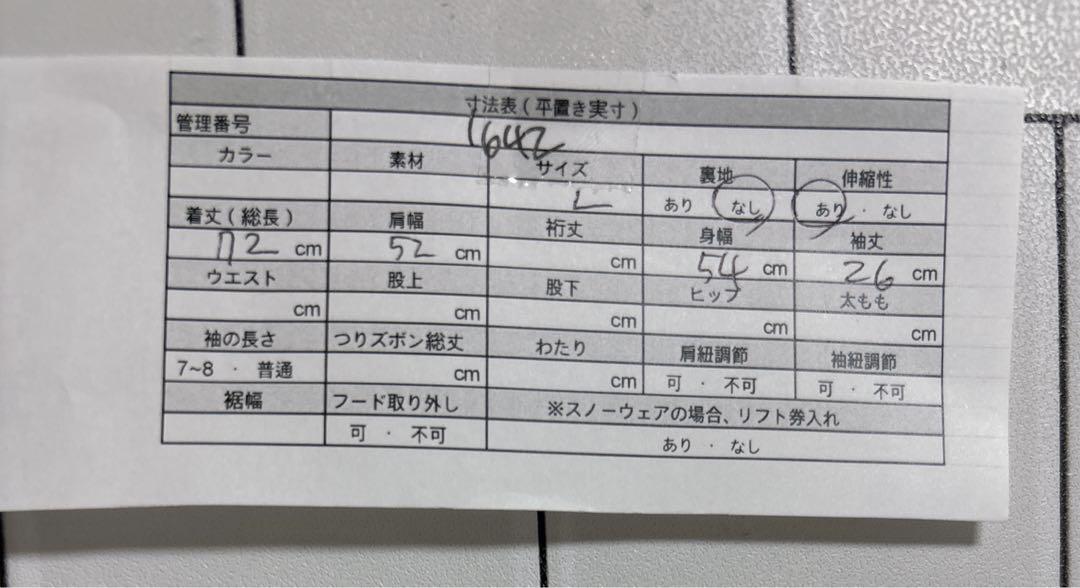 寸法表(平置き実寸)
管理番号 1642
カラー 素材 サイズ 裏地 伸縮性
L あり なし あり ・ なし
着丈(総長) 肩幅 裄丈 身幅 袖丈
72 cm 52 cm cm 54 cm 26 cm
ウエスト 股上 股下 ヒップ 太もも
cm cm cm cm cm
袖の長さ つりズボン総丈 わたり 肩紐調節 袖紐調節
7~8 ・ 普通 cm cm 可 ・ 不可 可 ・ 不可
裾幅 フード取り外し ※スノーウェアの場合、リフト券入れ
可 ・ 不可 あり ・ なし